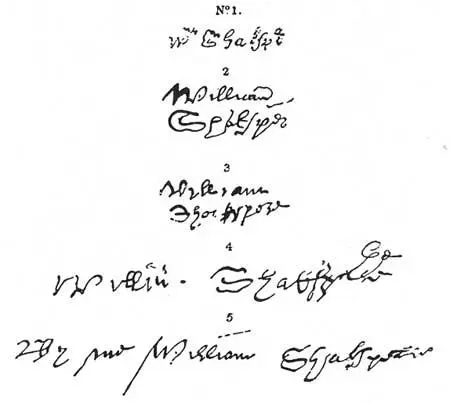 Nº1.
Wm Shaksp
2
William
Shaksper
3
William
Shakspere
4
William Shakspere
5
By me William Shakspeare